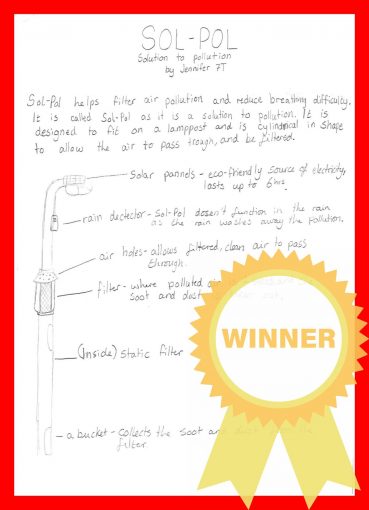 SOL-POL
Solution to pollution
by Jennifer 7T
Sol-Pol helps filter air pollution and reduce breathing difficulty.
It is called Sol-Pol as it is a solution to pollution. It is
designed to fit on a lamppost and is cylindrical in shape
to allow the air to pass trough, and be filtered.
Solar pannels - eco-friendly source of electricity,
lasts up to 6hrs
rain dectector - Sol-Pol dosen't function in the rain
as the rain washes away the pollution.
air holes - allows filtered, clean air to pass
through.
filter - where polluted air
soot and dust
(Inside) static filter
a bucket - collects the soot and
filter
WINNER